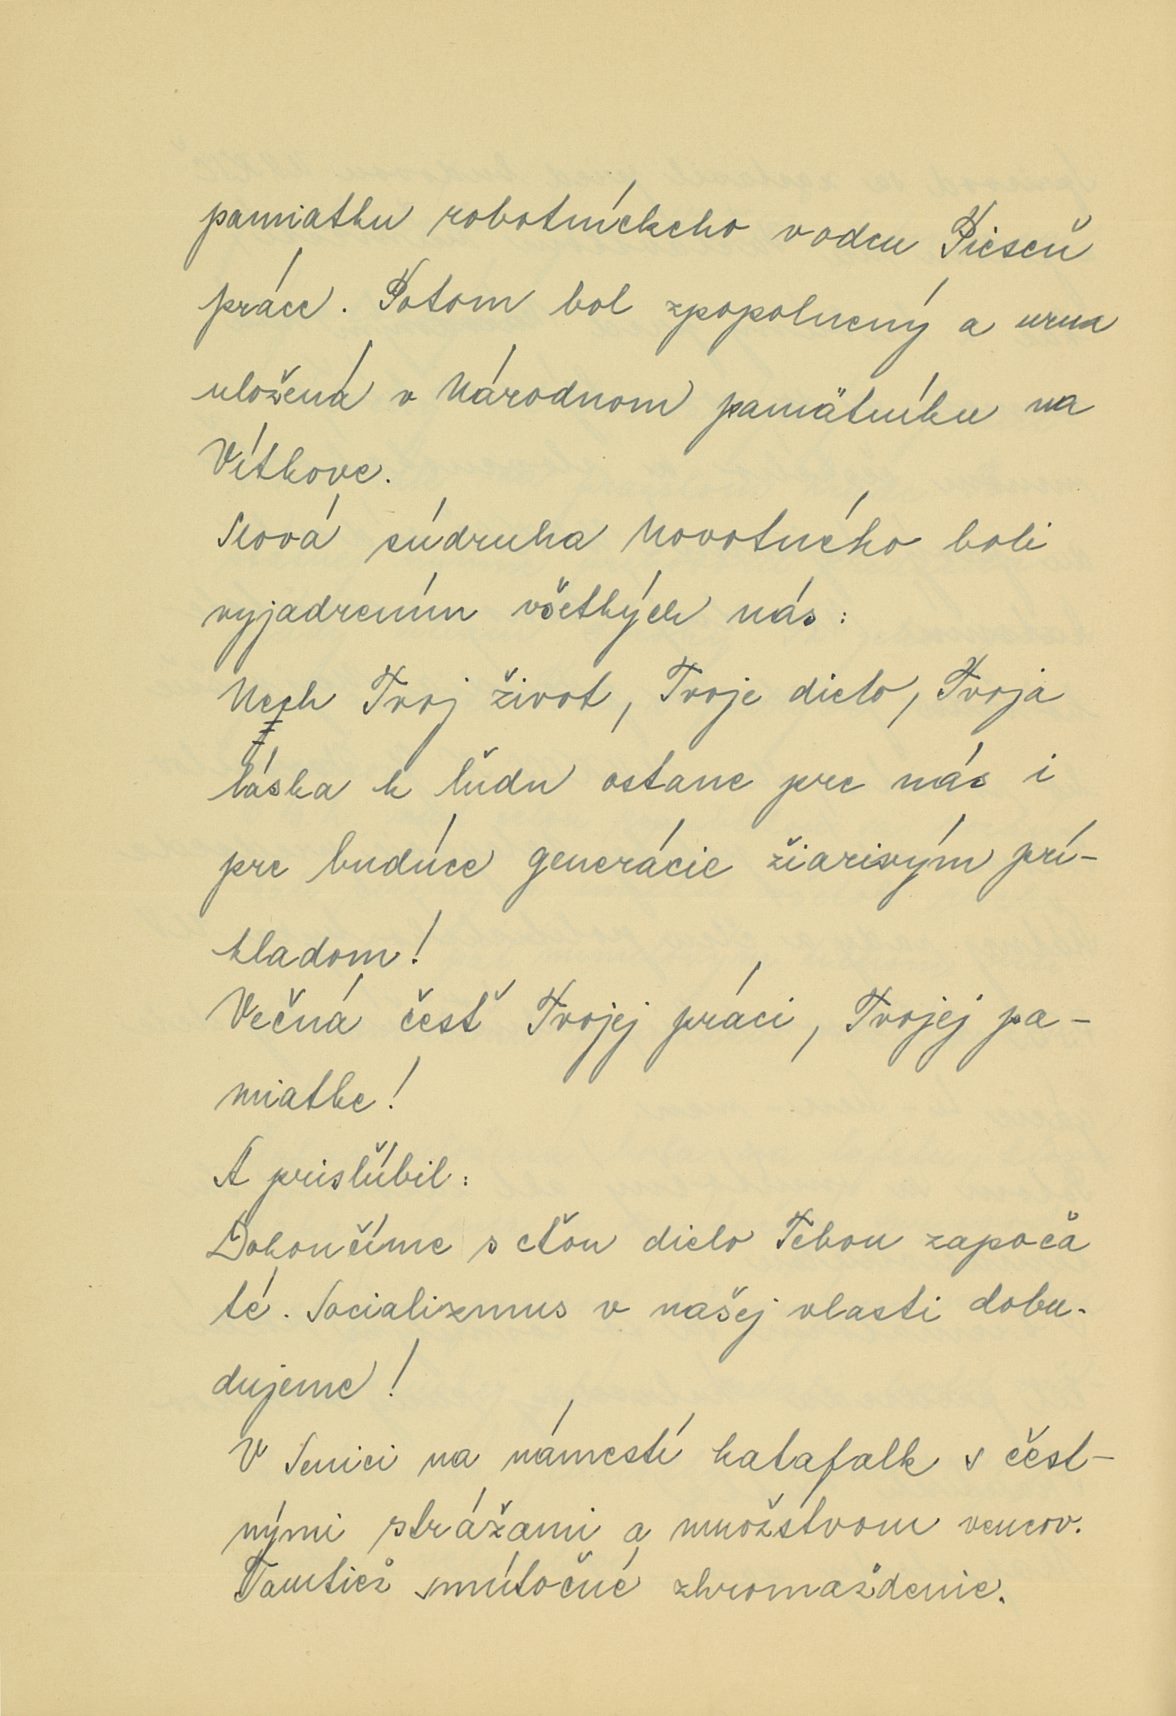 pamiatku robotníckeho vodcu Pieseň
práce. Potom bol zpopolnený a urna
uložená v Národnom pamätníku na
Vítkove.
Slová súdruha Novotného boli
vyjadrením všetkých nás:
Nech Tvoj život, Tvoje dielo, Tvoja
láska k ľudu ostane pre nás i
pre budúce generácie žiarivým prí-
kladom!
Večná česť Tvojej práci, Tvojej pa-
miatke!
A prisľúbil:
Dokončíme s cťou dielo Tebou započa
té. Socializmus v našej vlasti dobu-
dujeme!
V Senici na námestí katafalk s čest-
nými strážami a množstvom vencov.
Tamtiež smútočné zhromaždenie.